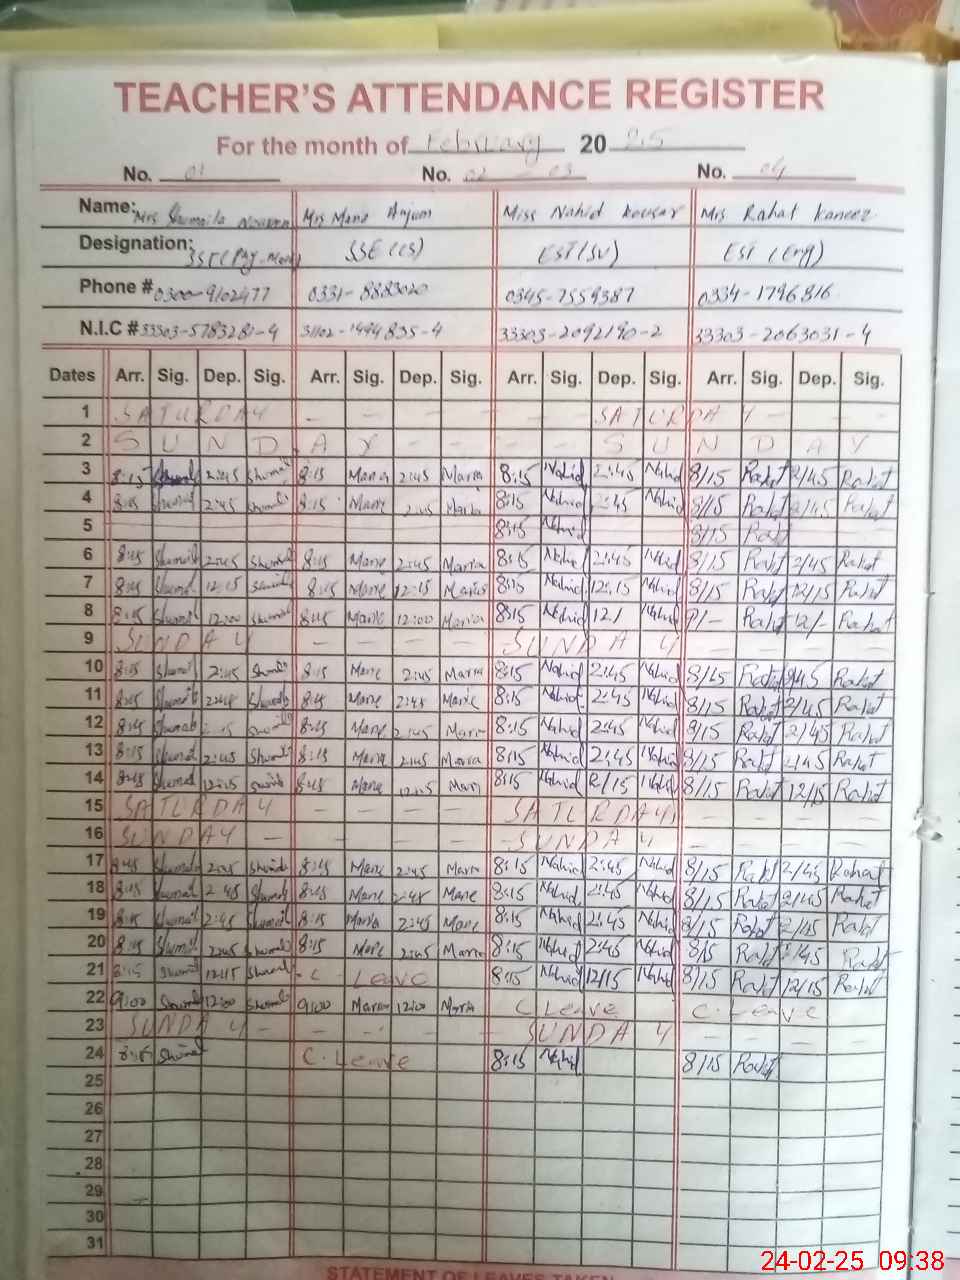 TEACHER'S ATTENDANCE REGISTER
For the month of February 20 25
No. 01 No. 02 03 No. 04
Name: Mrs Shumaila Mrs Maria Anjum Miss Nahid Kousar Mrs Rahat Kaneez
Designation: SSE (CS) EST (SV) EST (Eng)
Phone # 0300-9102477 0331-8883020 0345-7559387 0334-1796816
N.I.C # 33303-5783281-4 31102-1494835-4 33303-2092190-2 33303-2063031-4
Dates Arr. Sig. Dep. Sig. Arr. Sig. Dep. Sig. Arr. Sig. Dep. Sig. Arr. Sig. Dep. Sig.
1 SATURDAY - - - - SATURDAY - -
2 SUNDAY - - - - SUNDAY
3 8:15 2:45 8:15 Maria 2:45 Maria 8:15 Nahid 2:45 Nahid 8/15 Rahat 2/45 Rahat
4 8:15 2:45 8:15 2:45 Maria 8:15 Nahid 2:45 Nahid 8/15 Rahat 2/45 Rahat
5 8:15 Nahid 8/15 Rahat
6 8:15 2:45 8:15 2:45 Maria 8:15 Nahid 2:45 Nahid 8/15 Rahat 2/45 Rahat
7 8:15 12:15 8:15 12:15 8:15 Nahid 12:15 Nahid 8/15 Rahat 12/15 Rahat
8 8:15 12:00 8:15 12:00 Maria 8:15 Nahid 12/ Nahid 9/- Rahat 12/- Rahat
9 SUNDAY - - - - - SUNDAY - - - -
10 8:15 2:45 8:15 2:45 Maria 8:15 Nahid 2:45 Nahid 8/15 Rahat 2/45 Rahat
11 8:15 2:45 8:15 2:45 8:15 Nahid 2:45 Nahid 8/15 Rahat 2/45 Rahat
12 8:15 8:15 2:45 8:15 Nahid 2:45 Nahid 8/15 Rahat 2/45 Rahat
13 8:15 2:45 8:15 2:45 Maria 8:15 Nahid 2:45 Nahid 8/15 Rahat 2/45 Rahat
14 8:15 12:15 8:15 12:15 8:15 Nahid 12/15 Nahid 8/15 Rahat 12/15 Rahat
15 SATURDAY - - - - SATURDAY - - - -
16 SUNDAY - - - - - SUNDAY - - - -
17 8:45 2:45 8:15 2:45 8:15 Nahid 2:45 Nahid 8/15 Rahat 2/45 Rahat
18 8:15 2:45 8:15 2:45 8:15 Nahid 2:45 Nahid 8/15 Rahat 2/45 Rahat
19 8:15 2:45 8:15 Maria 2:45 8:15 Nahid 2:45 Nahid 8/15 Rahat 2/45 Rahat
20 8:15 2:45 8:15 2:45 Maria 8:15 Nahid 2:45 Nahid 8/15 Rahat 2/45 Rahat
21 8:15 12:15 C Leave 8:15 Nahid 12/15 Nahid 8/15 Rahat 12/15 Rahat
22 9:00 12:00 9:00 Maria 12:00 Maria C Leave C. Leave
23 SUNDAY - - - - - SUNDAY - - - -
24 8:15 C. Leave 8:15 Nahid 8/15 Rahat
25
26
27
28
29
30
31
STATEMENT OF LEAVES TAKEN
24-02-25 09:38